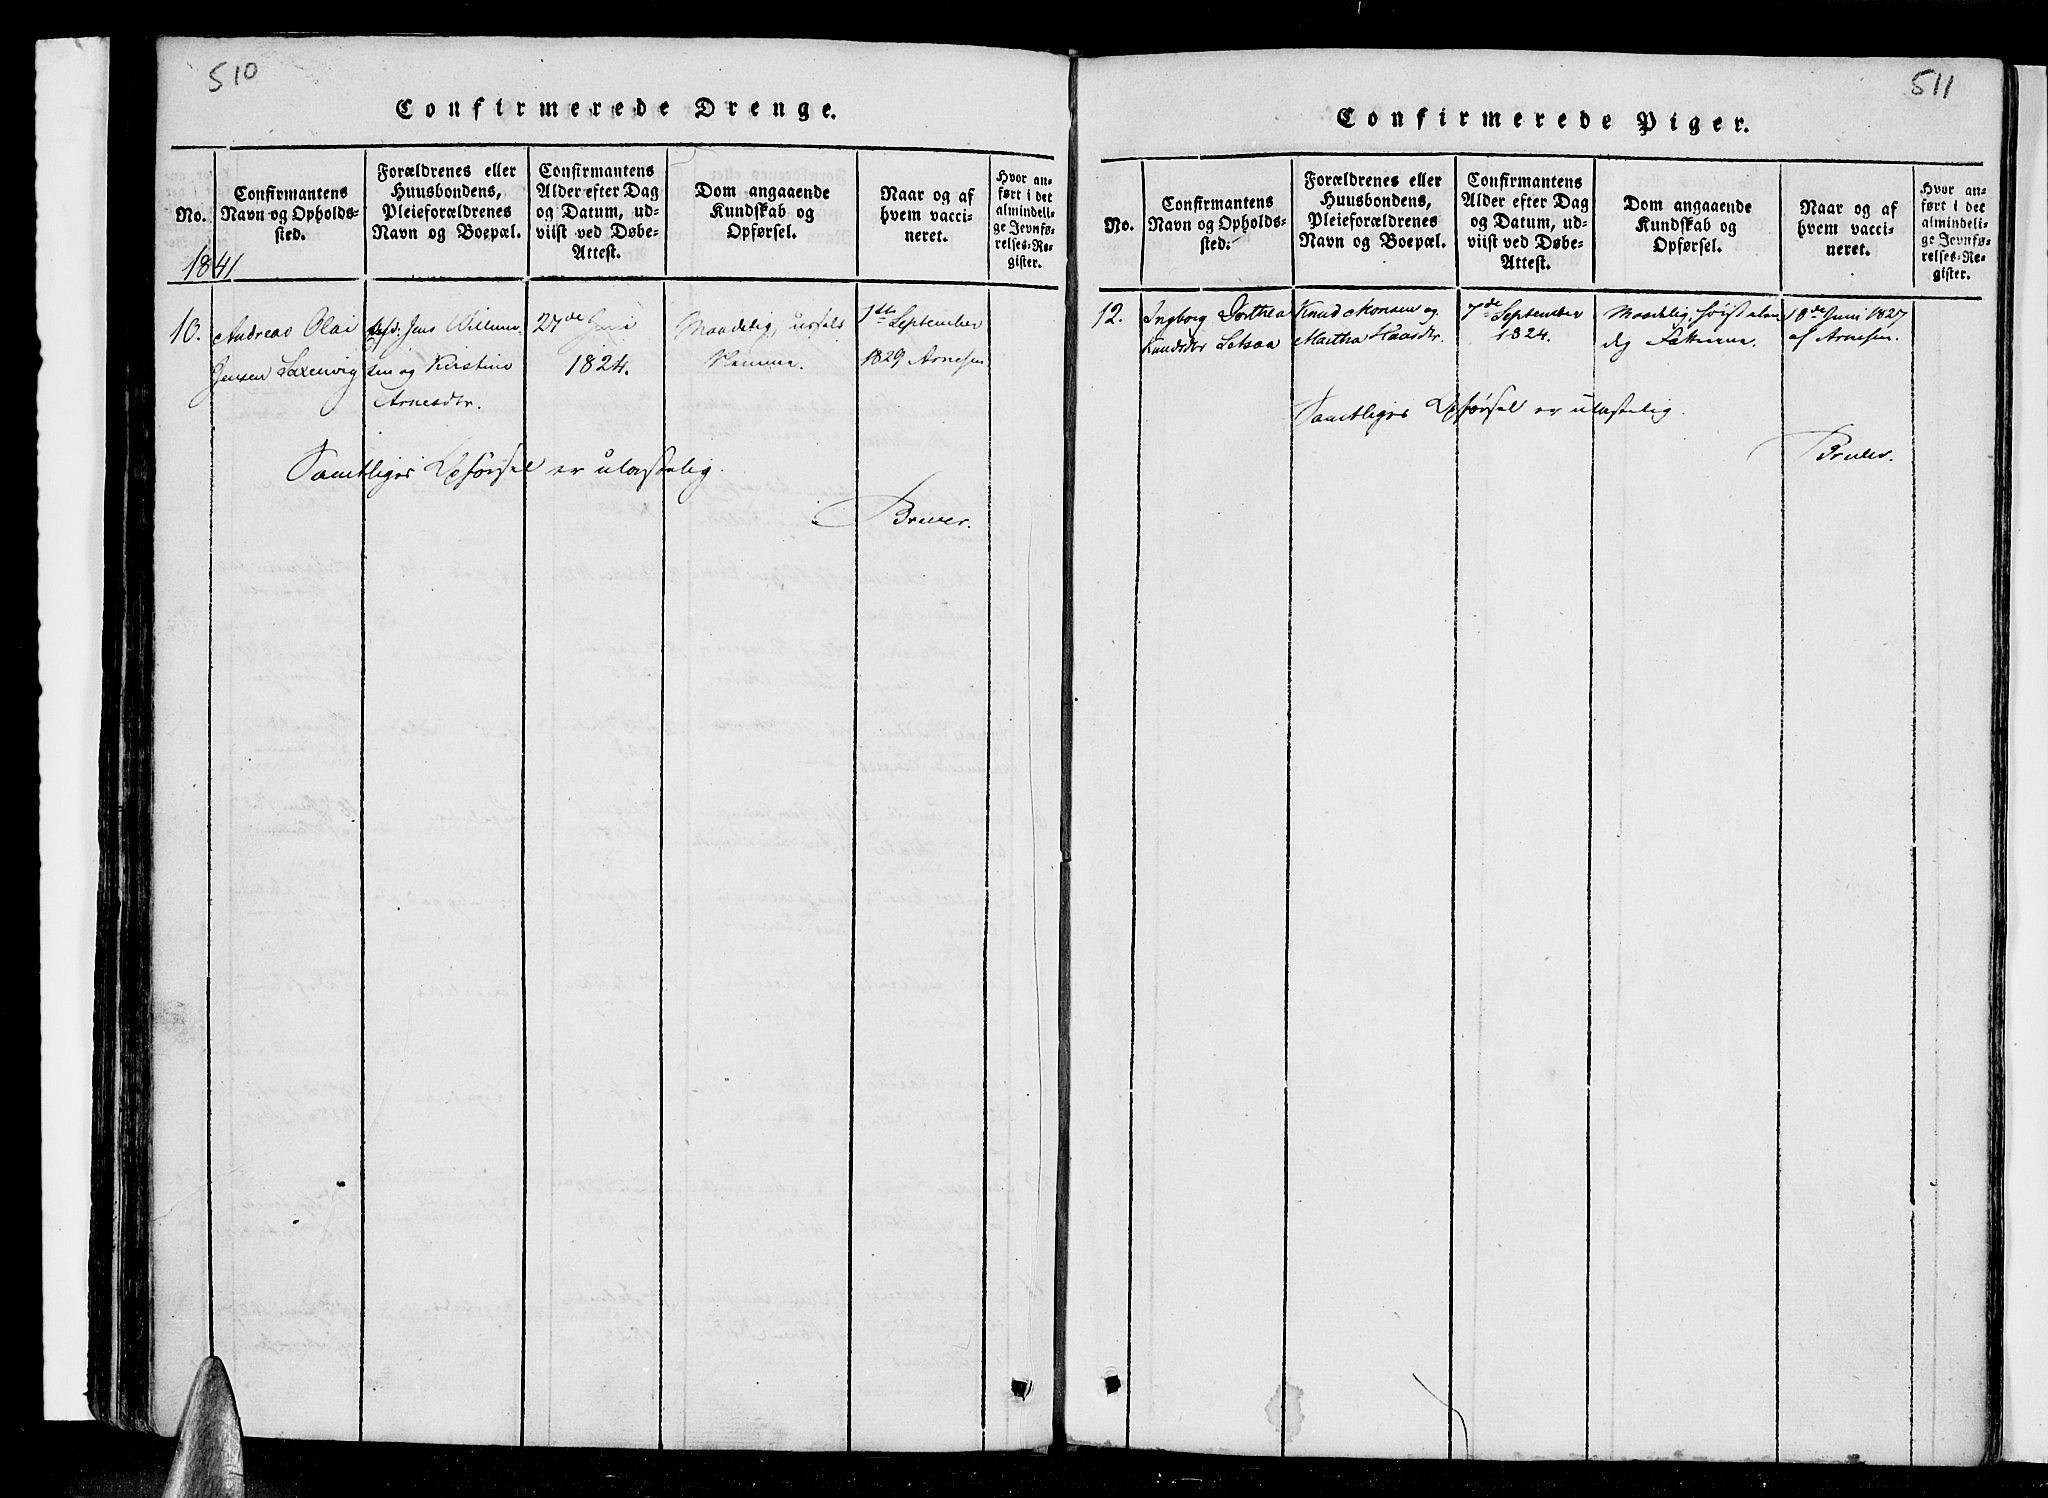 510
Confirmerede Drenge.
No.
Confirmantens
Navn og Opholds-
sted.
Forældrenes eller
Huusbondens,
Pleieforældrenes
Navn og Boepæl.
Confirmantens
Alder efter Dag
og Datum, ud-
viist ved Døbe-
Attest.
Dom angaaende
Kundskab og
Opførsel.
Naar og af
hvem vacci-
neret.
Hvor an-
ført i det
almindeli-
ge Jevnfø-
relses-Re-
gister.
1841
10.
Andreas Olai
Jensen Laxevig
Jens Willum-
sen og Kirstine
Arnesdtr.
27de Juni
1824.
Maadelig,
1ste September
1829 Arnesen
Samtliges Opførsel er ulastelig.
Bruun.
511
Confirmerede Piger.
No.
Confirmantens
Navn og Opholds-
sted.
Forældrenes eller
Huusbondens,
Pleieforældrenes
Navn og Boepæl.
Confirmantens
Alder efter Dag
og Datum, ud-
viist ved Døbe-
Attest.
Dom angaaende
Kundskab og
Opførsel.
Naar og af
hvem vacci-
neret.
Hvor an-
ført i det
almindeli-
ge Jevnfø-
relses-Re-
gister.
12.
Ingborg Dorthea
Knudsdtr
Knud Monsen og
Martha
7de September
1824.
Maadelig,
18de Juni 1827
af Arnesen.
Samtliges Opførsel er ulastelig.
Bruun.